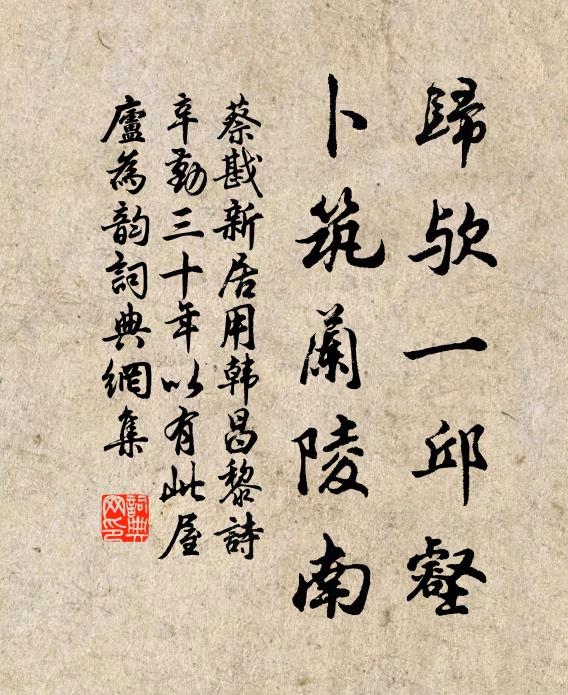 歸歟一邱壑
卜筑蘭陵南
蔡戡新居用韩昌黎詩
辛勤三十年以有此屋
廬為韵詞典網集
詞典网印